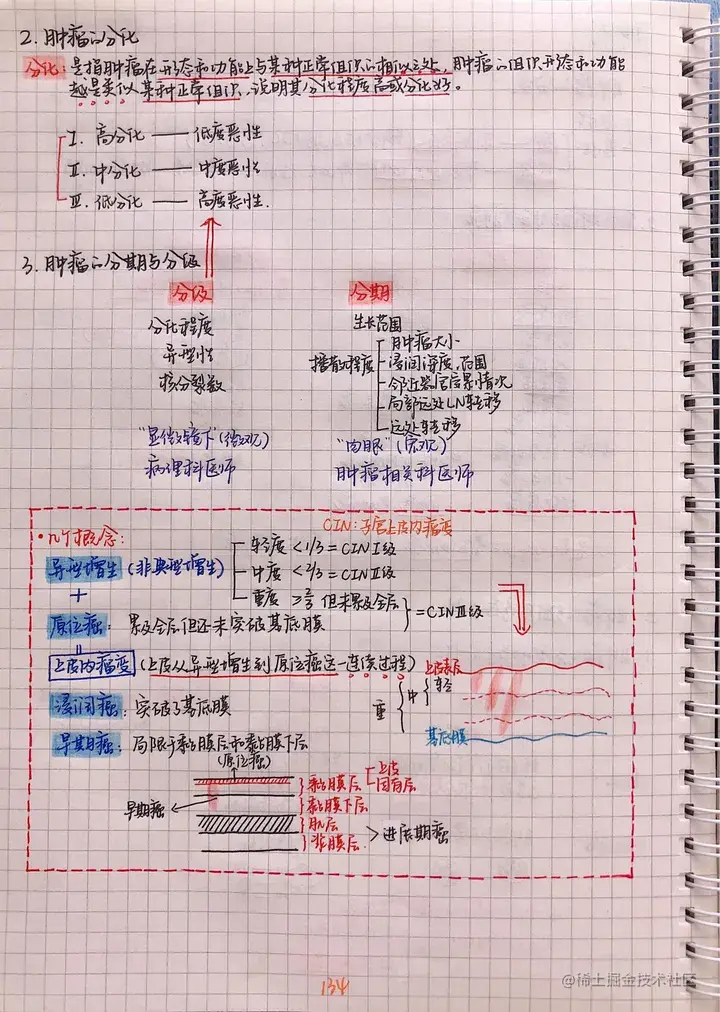 2. 肿瘤的分化
分化：是指肿瘤在形态和功能上与某种正常组织的相似之处，肿瘤的组织形态和功能
越是类似某种正常组织，说明其分化程度高或分化好。
Ⅰ. 高分化 —— 低度恶性
Ⅱ. 中分化 —— 中度恶性
Ⅲ. 低分化 —— 高度恶性.
3. 肿瘤的分期与分级
分级
分化程度
异型性
核分裂数
"显微镜下"(微观)
病理科医师
分期
生长范围
播散程度
肿瘤大小
浸润深度,范围
邻近器官受累情况
局部远处LN转移
远处转移
"肉眼"(宏观)
肿瘤相关科医师
CIN：子宫上皮内瘤变
•几个概念：
异型增生（非典型增生）
轻度 <1/3=CINⅠ级
中度 <2/3=CINⅡ级
重度 ≥2/3 但未累及全层
=CINⅢ级
+
原位癌：累及全层但还未突破基底膜
=
上皮内瘤变（上皮从异型增生到原位癌这一连续过程）
浸润癌：突破了基底膜
早期癌：局限于黏膜层和黏膜下层
上皮表层
轻
中
重
基底膜
(原位癌)
早期癌
黏膜层
上皮
固有层
黏膜下层
肌层
浆膜层
>进展期癌
134
@稀土掘金技术社区